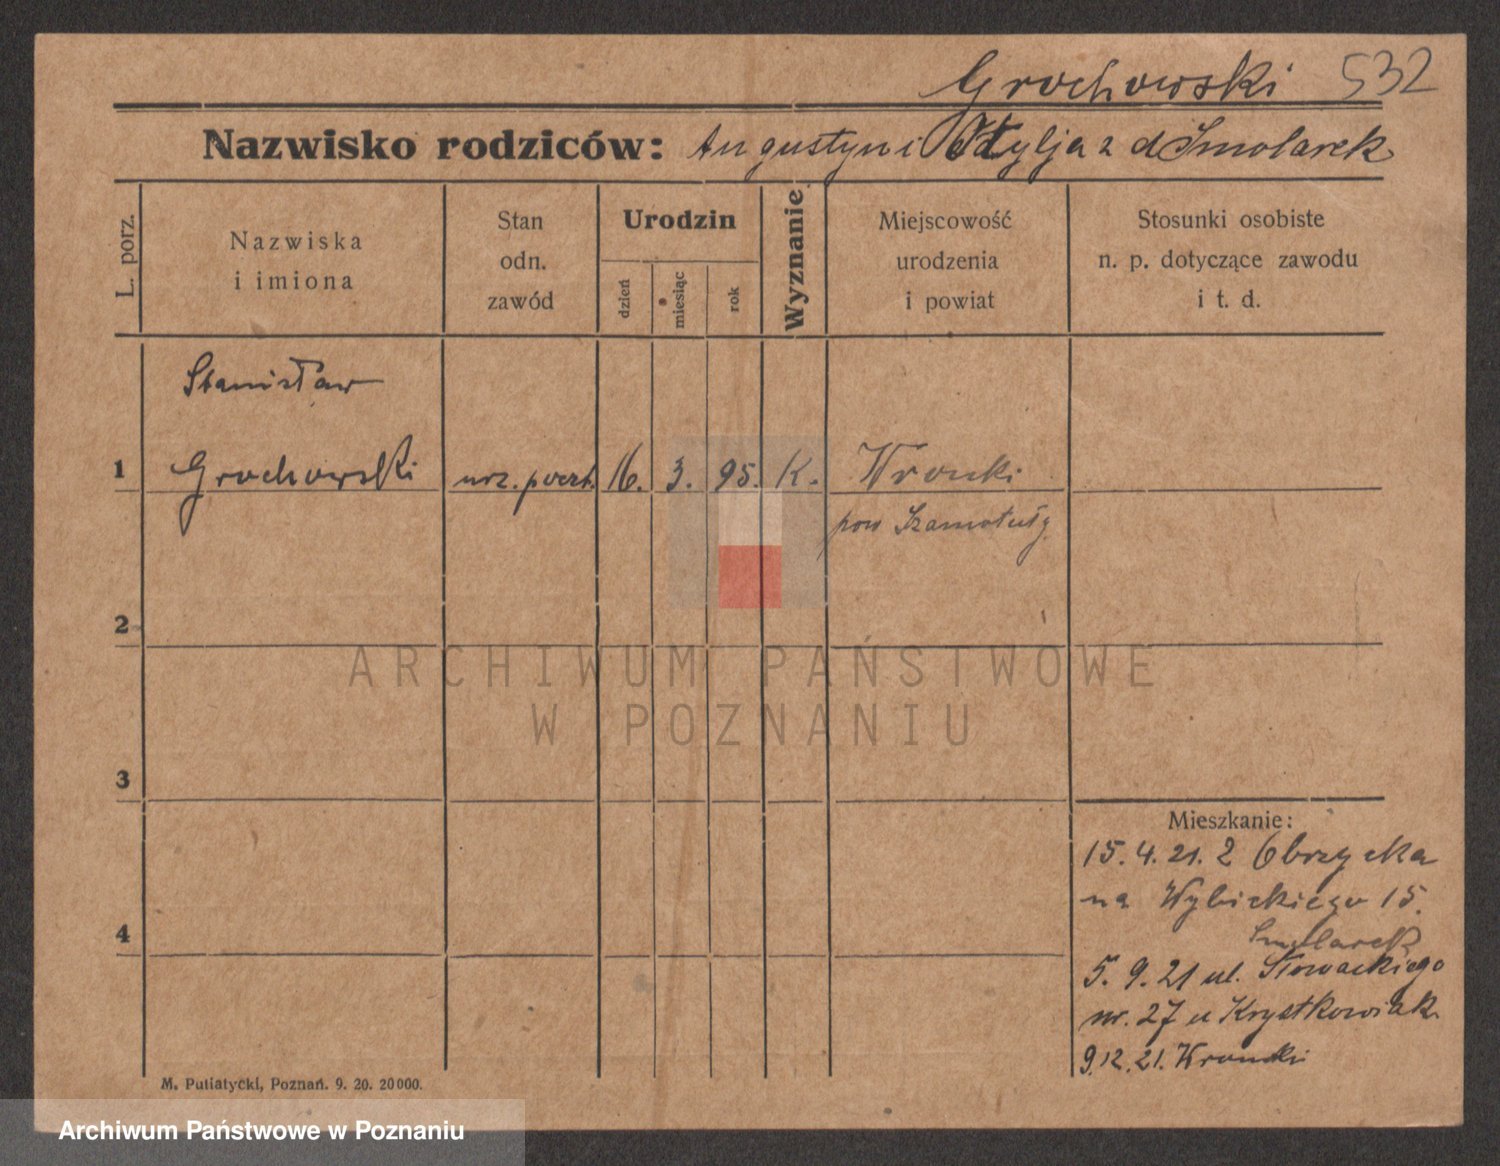 Grochowski 532
Nazwisko rodziców: Augustyn i Otylja z d Smolarek
L. porz.
Nazwiska
i imiona
Stan
odn.
zawód
Urodzin
dzień
miesiąc
rok
Wyznanie
Miejscowość
urodzenia
i powiat
Stosunki osobiste
n. p. dotyczące zawodu
i t. d.
Stanisław
1 Grochowski urz. poczt. 16. 3. 95. K. Wronki
pow Szamotuły
2
ARCHIWUM PAŃSTWOWE
W POZNANIU
3
Mieszkanie:
15. 4. 21. z Obrzycka
na Wybickiego 15.
Smolarek
4
5. 9. 21 ul. Słowackiego
nr. 27 u Krystkowiak
9.12.21. Wronki
M. Putiatycki, Poznań. 9. 20. 20000.
Archiwum Państwowe w Poznaniu